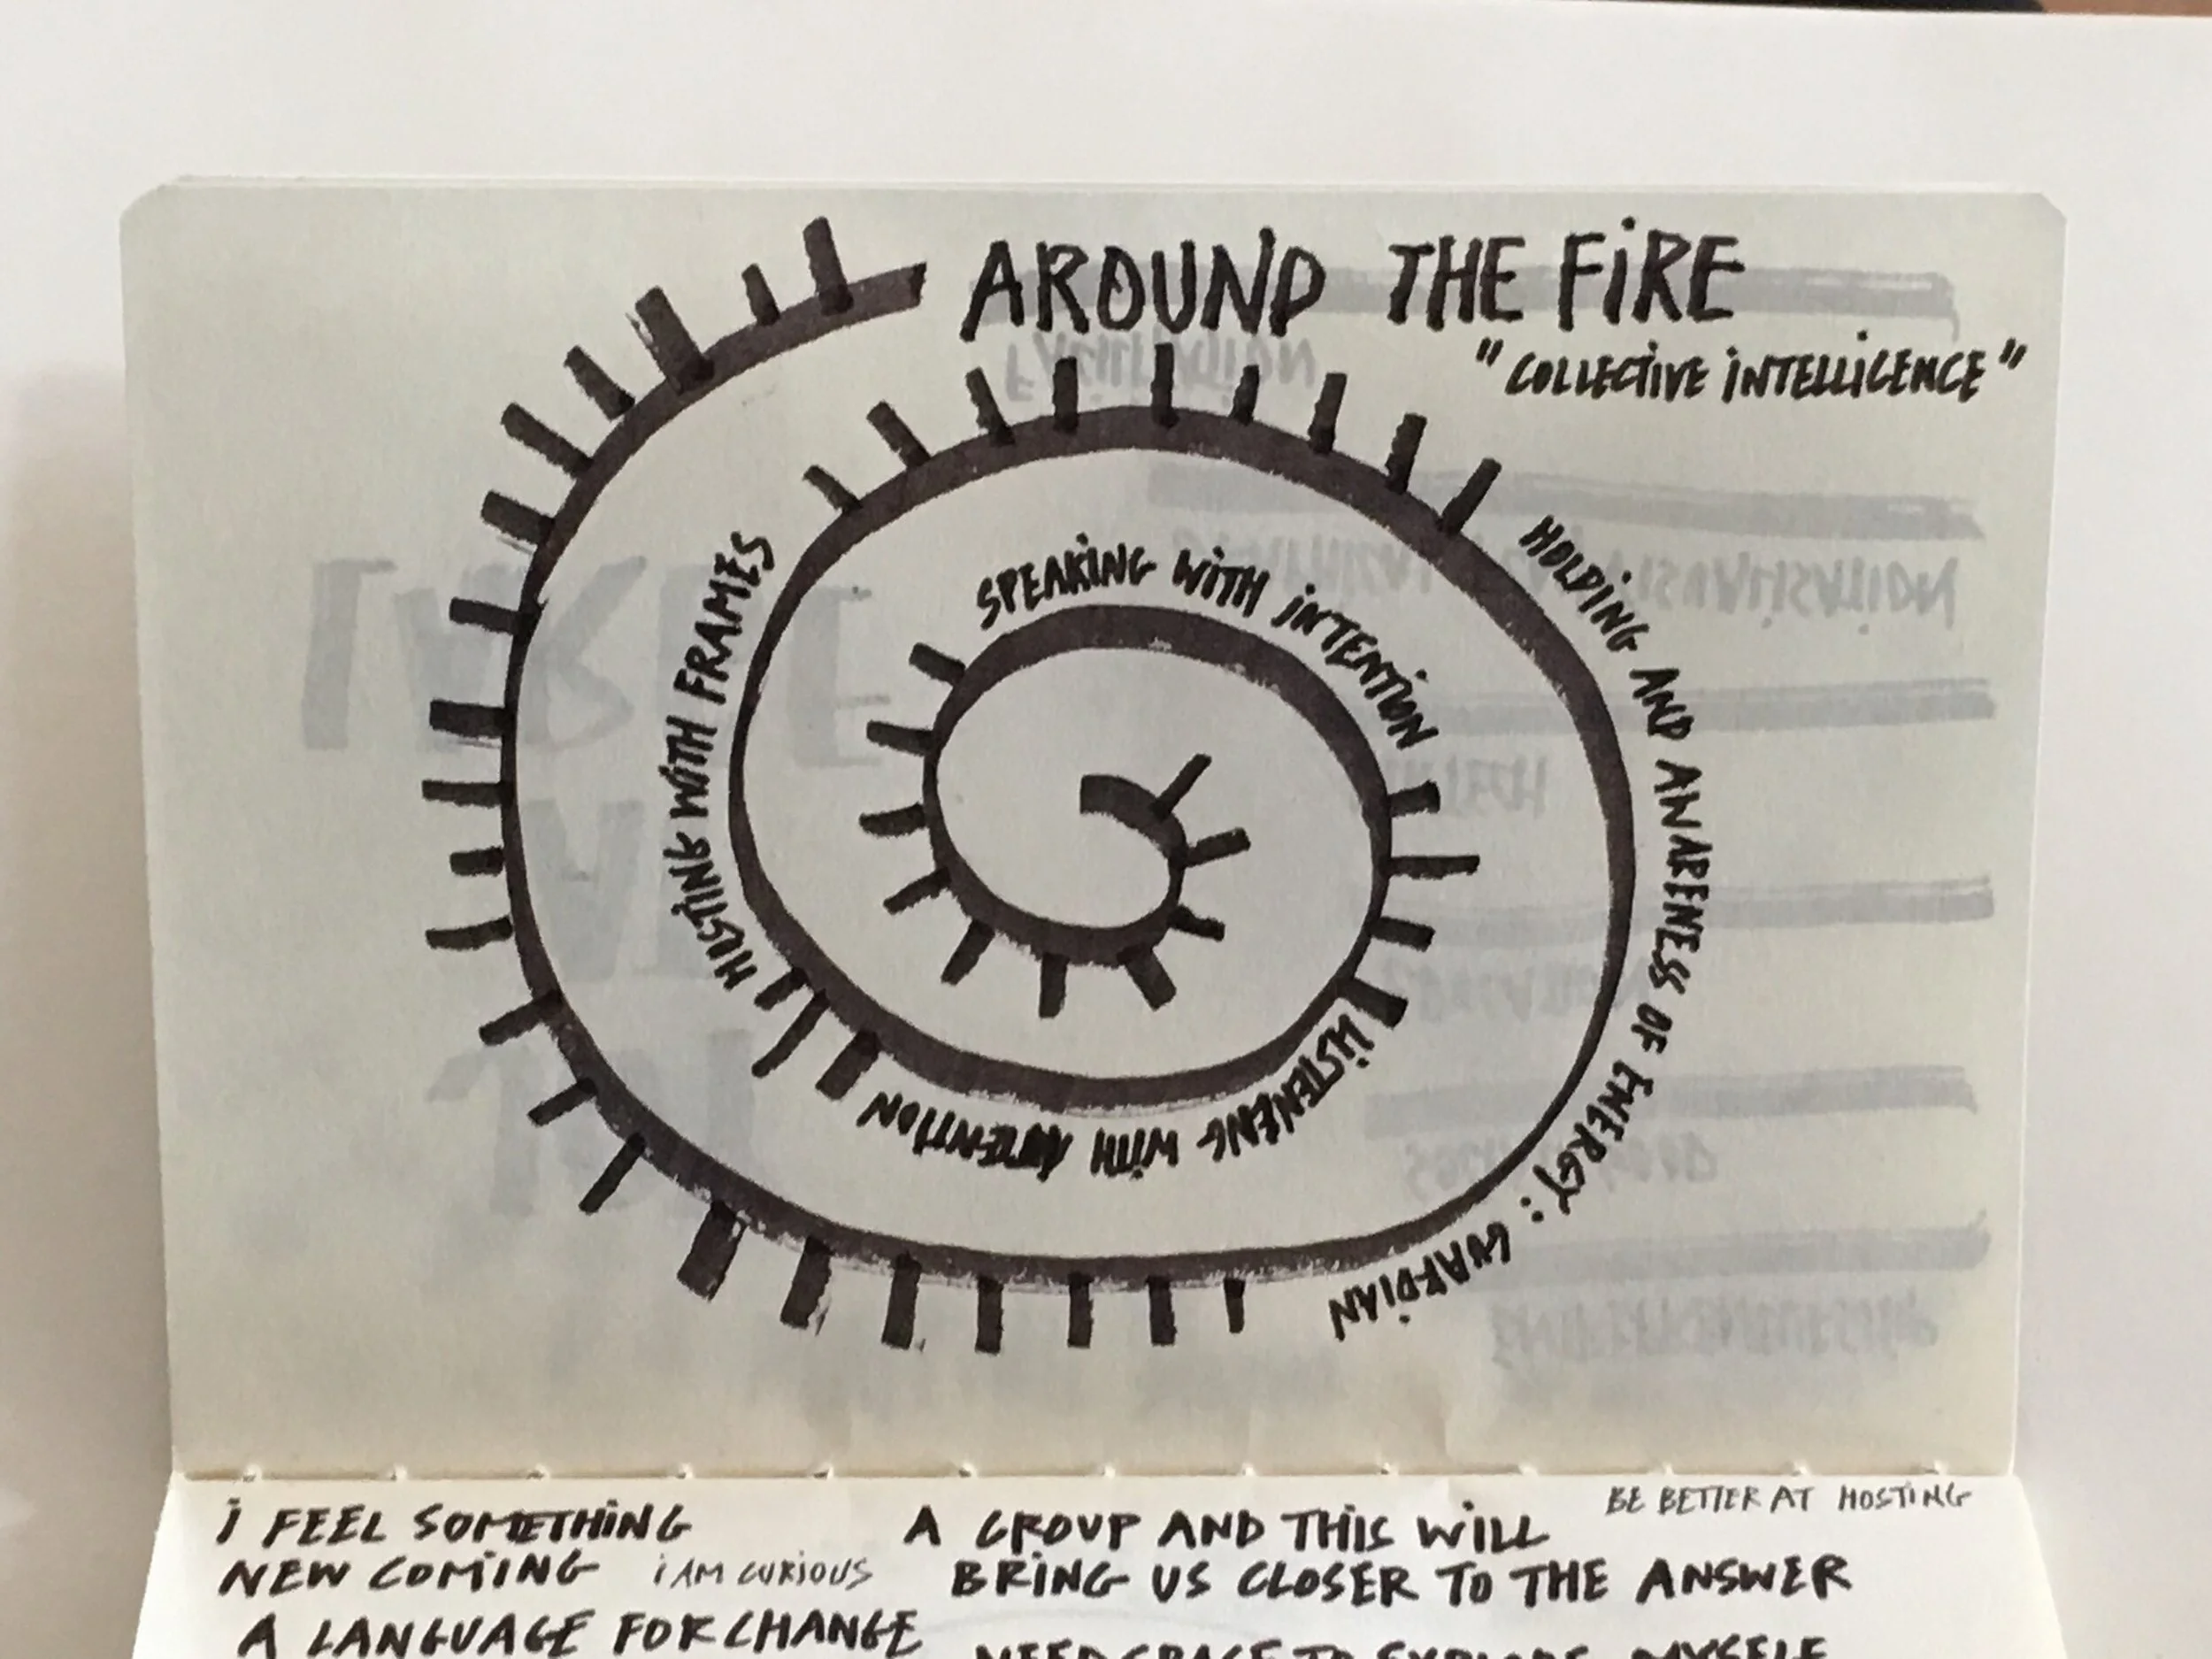 AROUND THE FIRE
"COLLECTIVE INTELLIGENCE"
SPEAKING WITH INTENTION
LISTENENG WITH ATTENTION
HOSTING WITH FRAMES
HOLDING AND AWARENESS OF ENERGY: GUARDIAN
I FEEL SOMETHING
NEW COMING I AM CURIOUS
A LANGUAGE FOR CHANGE
BE BETTER AT HOSTING
A GROUP AND THIS WILL
BRING US CLOSER TO THE ANSWER
NEED SPACE TO EXPLORE MYSELF